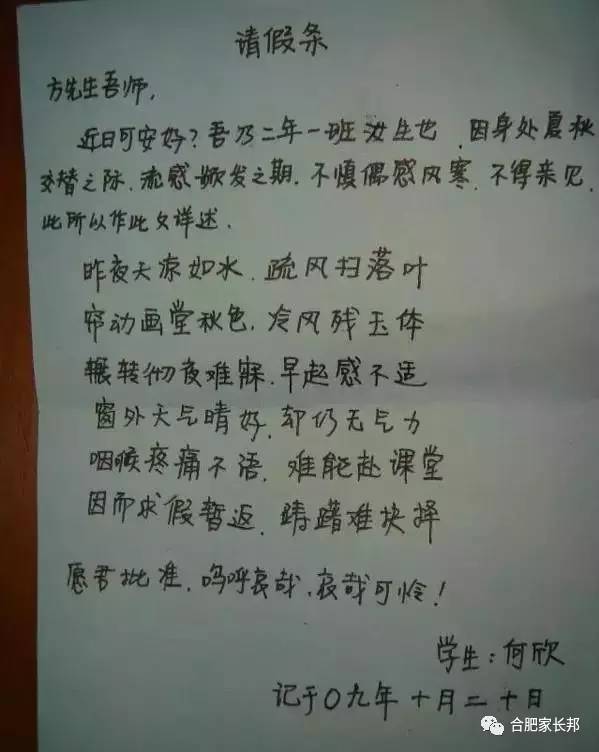 请假条
方先生吾师，
近日可安好？吾乃二年一班汝生也，因身处夏秋
交替之际，流感频发之期，不慎偶感风寒，不得来见，
此所以作此文详述．
昨夜天凉如水，疏风扫落叶
帘动画堂秋色，冷风残玉体
辗转彻夜难寐，早起感不适
窗外天气晴好，却仍无气力
咽喉疼痛不语，难能赴课堂
因而求假暂返，踌躇难抉择
愿君批准，呜呼哀哉，哀哉可怜！
学生：何欣
记于〇九年十月二十日
合肥家长邦